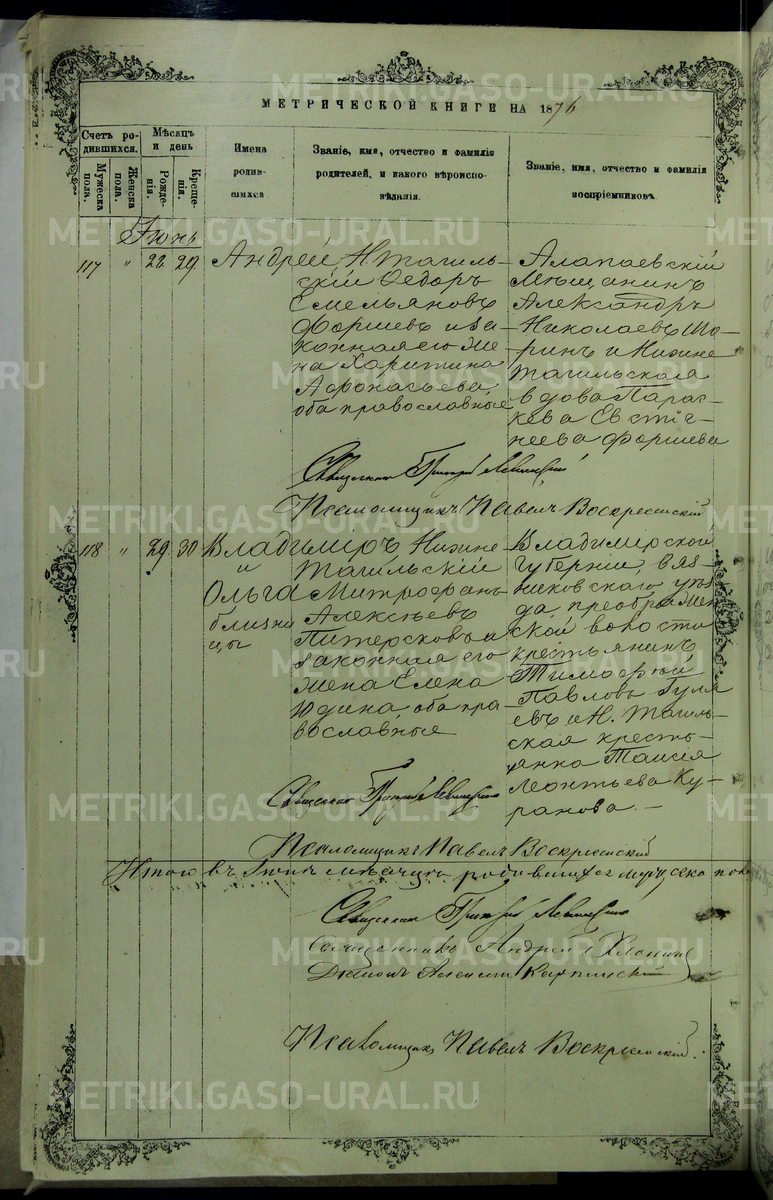 МЕТРИЧЕСКОЙ КНИГИ НА 1876
Счетъ ро-
дившихся.
Мѣсяцъ
и день
Мужеска
пола.
Женска
пола.
Рожде-
нія.
Креще-
нія.
Имена
родив-
шихся
Званіе, имя, отчество и фамилія
родителей, и какого вѣроиспо-
вѣданія.
Званіе, имя, отчество и фамилія
воспріемниковъ.
Іюнь
117 " 28 29
Андрей
Н. Тагиль-
скій Ѳедоръ
Емельяновъ
Форшевъ и за-
конная его же-
на Харитина
Афонасьева
оба православные
Алапаевскій
Мѣщанинъ
Александръ
Николаевъ Шо-
ринъ и Нижне
Тагильская
вдова Парас-
кева Евстиг-
неева Форшева
Священникъ Григорій Левицкій
Псаломщикъ Павелъ Воскресенскій
118 " 29 30
Владиміръ
и
Ольга
близни
цы
Нижне
Тагильскій
Митрофанъ
Алексѣевъ
Питерсковъ и
законная его
жена Елена
Юдина, оба пра-
вославные
Владимірской
Губерніи, Вяз-
никовскаго уѣз-
да, преображен
ской волости
крестьянинъ
Тимофей
Павловъ Гуля
евъ и Н. Тагиль-
ская кресть-
янка Таисія
Леонтьева Ку-
ранова. –
Священникъ Григорій Левицкій
Псаломщикъ Павелъ Воскресенскій
Итого въ Іюнѣ мѣсяцѣ родившихся мужеска пола
Священникъ Григорій Левицкій
Священникъ Андрей Хлопинъ
Діаконъ Алексѣй Карпинскій
Псаломщикъ Павелъ Воскресенскій.
METRIKI.GASO-URAL.RU